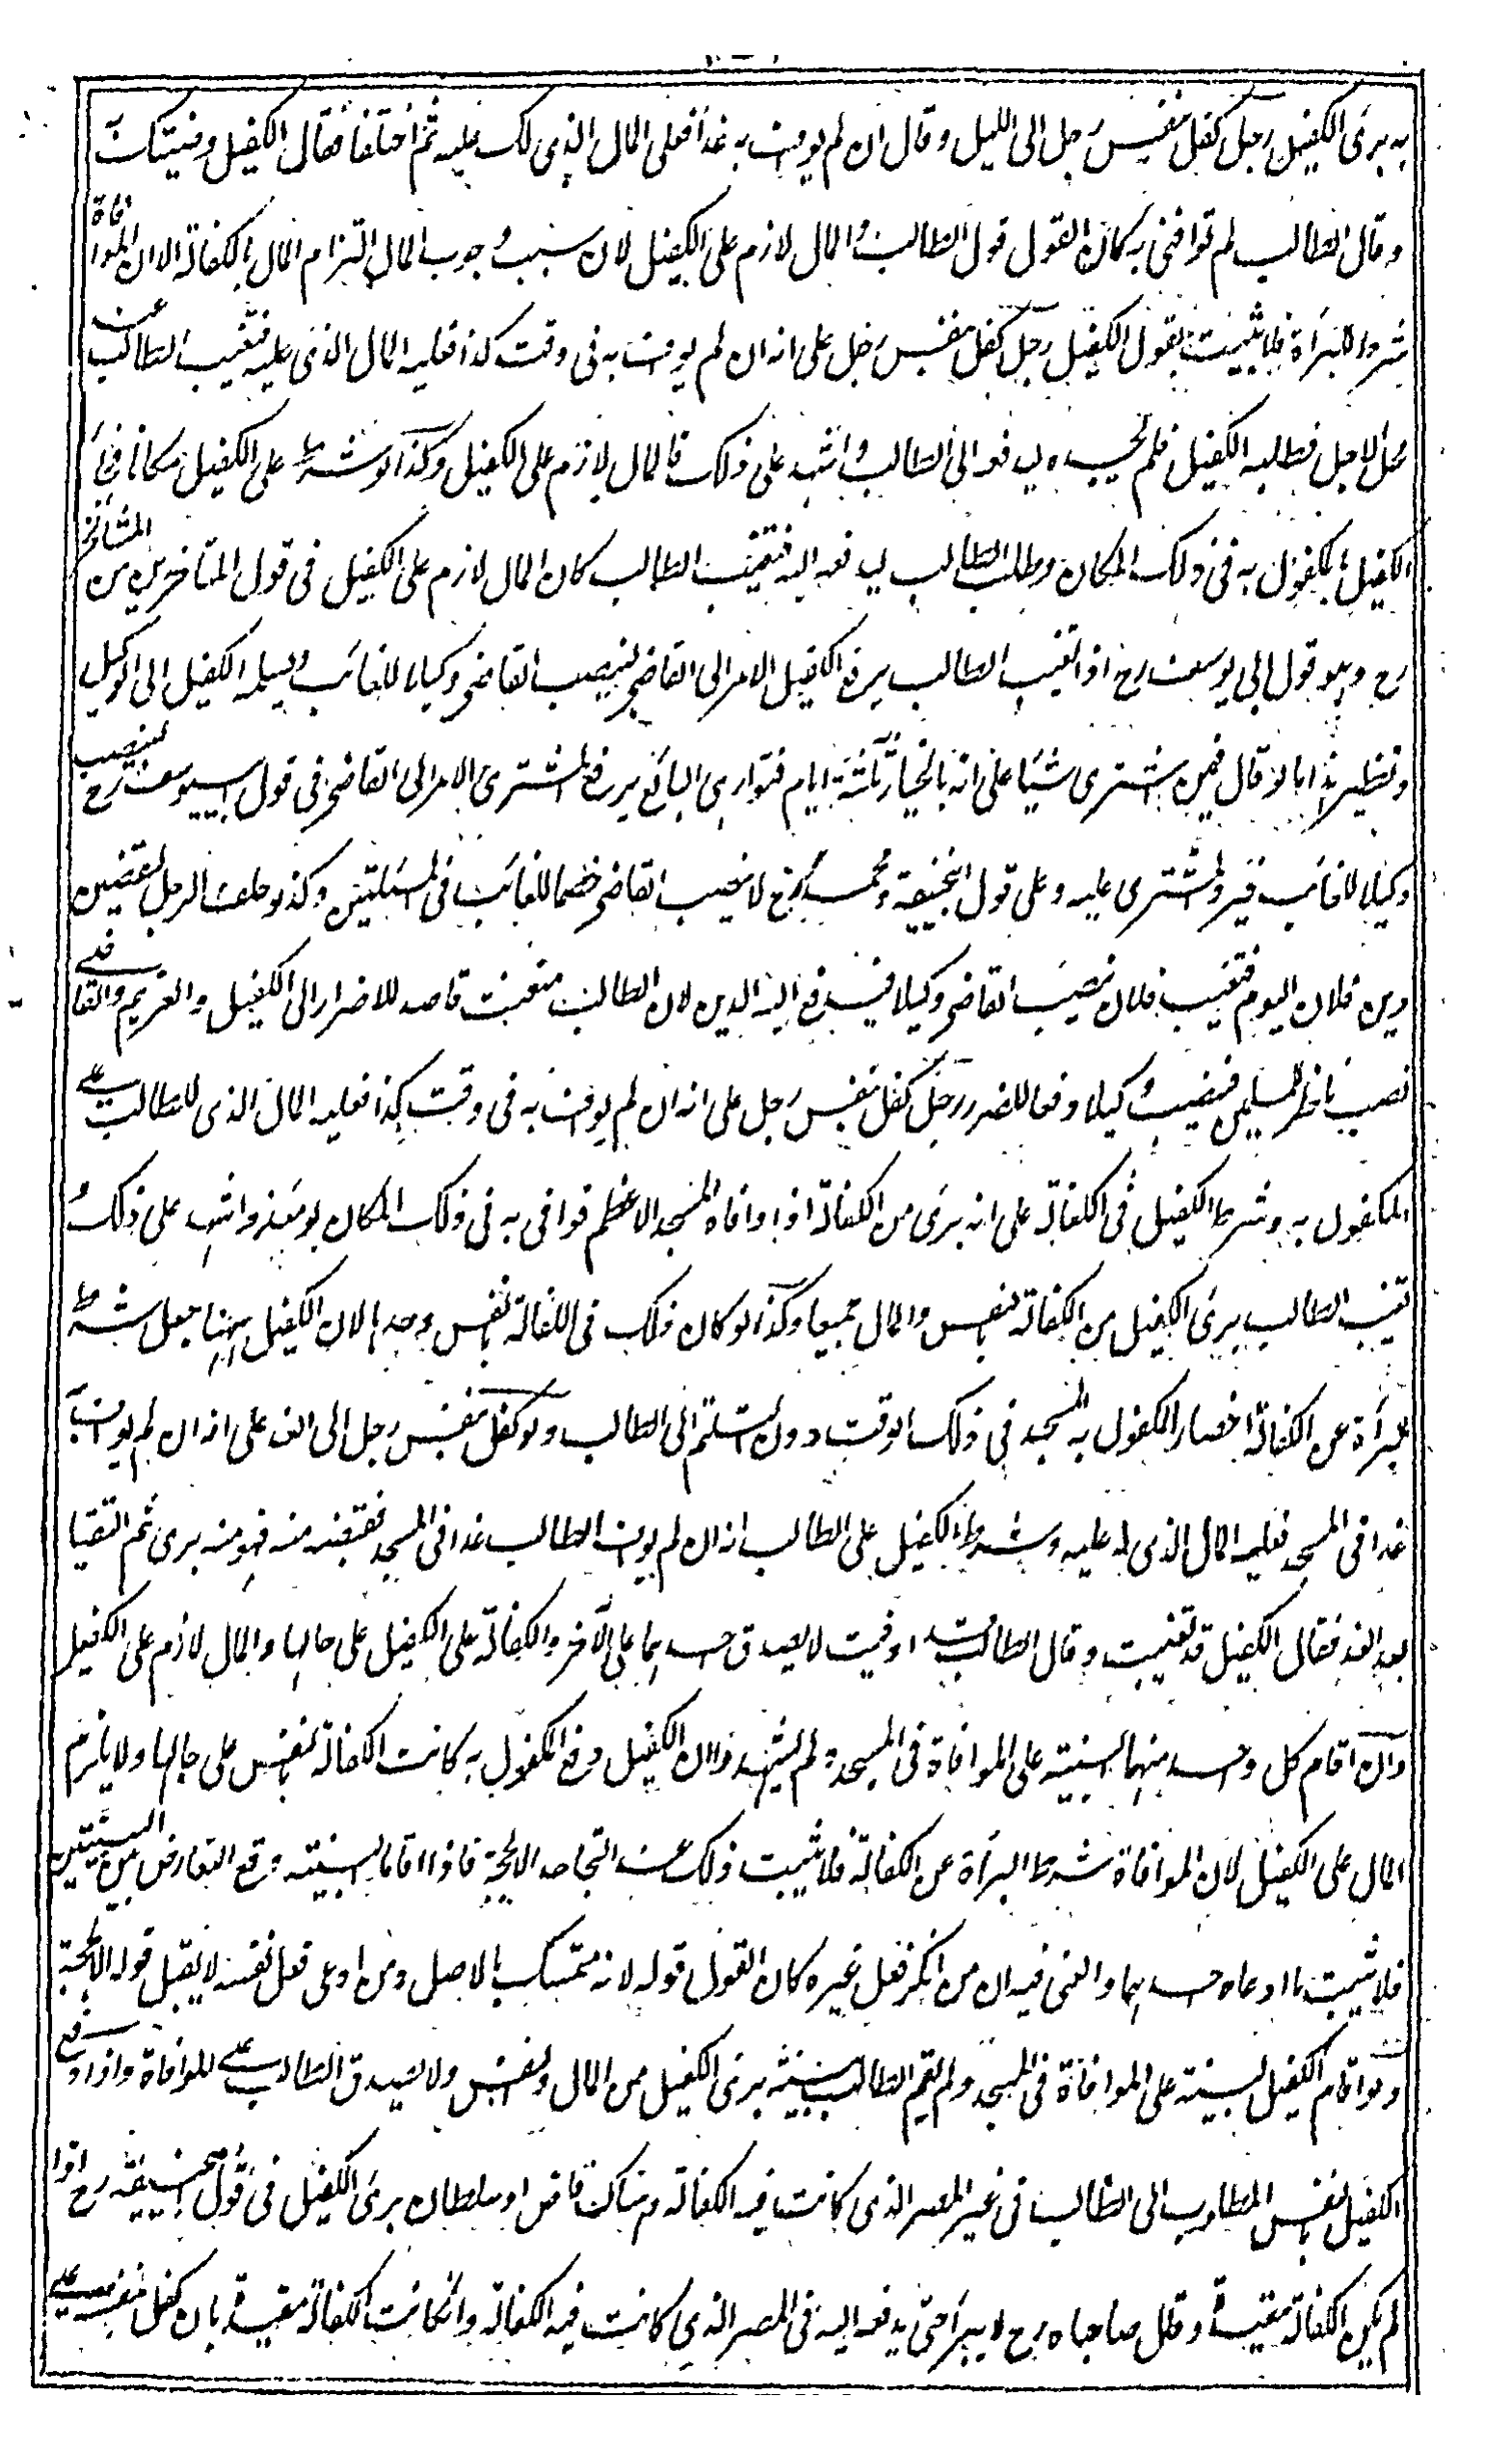 به برئ الكفيل رجل كفل بنفس رجل الى الليل وقال ان لم يوف به غدا فعلى المال الذى لك عليه ثم اختلفا فقال الكفيل وفيتك به
وقال الطالب لم توافنى به كان القول قول الطالب والمال لازم على الكفيل لان سبب وجوب المال التزام المال بالكفالة الا ان الموافاة
شرط للبرأة فلا يثبت بقول الكفيل رجل كفل بنفس رجل على انه ان لم يوف به فى وقت كذا فعليه المال الذى عليه فتغيب الطالب عند
محل الاجل فطلبه الكفيل فلم يجده ليدفعه الى الطالب واشهد على ذلك فالمال لازم على الكفيل وكذا لو شرط على الكفيل مكانا فجاء
الكفيل بالمكفول به فى ذلك المكان وطلب الطالب ليدفعه اليه فتغيب الطالب كان المال لازم على الكفيل فى قول المتاخرين من المشائخ
رح وهو قول ابى يوسف رح اذا تغيب الطالب يرفع الكفيل الامر الى القاضى لينصب القاضى وكيلا للغائب ويسلمه الكفيل الى الوكيل
ونظير هذا ما لو قال فيمن يشترى شيئا على انه بالخيار ثلثة ايام فتوارى البائع يرفع المشترى الامر الى القاضى فى قول ابى يوسف رح لينصب
وكيلا للغائب فيرد المشترى عليه وعلى قول ابى حنيفة ومحمد رح لا ينصب القاضى خصما للغائب فى المسئلتين وكذا لو حلف الرجل ليقضين
دين فلان اليوم فتغيب فلان نصب القاضى وكيلا فيدفع اليه الدين لان الطالب متعنت قاصد للاضرار الى الكفيل والغريم والقاضى
نصب ناظرا للمسلمين فينصب وكيلا دفعا للضرر رجل كفل بنفس رجل على انه ان لم يوف به فى وقت كذا فعليه المال الذى للطالب على
المكفول به وشرط الكفيل فى الكفالة على انه برئ من الكفالة اذا وافاه المسجد الاعظم فوافى به فى ذلك المكان يومئذ واشهد على ذلك و
تغيب الطالب يبرئ الكفيل من الكفالة بالنفس والمال جميعا وكذا لو كان ذلك فى الكفالة بالنفس وحدها لان الكفيل ههنا جعل شرط
البرأة عن الكفالة احضار المكفول به المسجد فى ذلك الوقت دون التسليم الى الطالب ولو كفل بنفس رجل الى الغد على انه ان لم يوف به
غدا فى المسجد فعليه المال الذى له عليه وشرط الكفيل على الطالب انه ان لم يوف الطالب غدا فى المسجد فيقبضه منه فهو منه برئ ثم التقيا
بعد الغد فقال الكفيل قد تغيبت وقال الطالب قد وفيت لا يصدق احدهما على الآخر والكفالة على الكفيل على حالها والمال لازم على الكفيل
وان اقام كل واحد منهما البينة على الموافاة فى المسجد ولم يشهدوا ان الكفيل دفع المكفول به كانت الكفالة بالنفس على حالها ولا يلزم
المال على الكفيل لان الموافاة شرط البرأة عن الكفالة فلا يثبت ذلك عند التجاحد الا بحجة فاذا اقاما البينة وقع التعارض بين البينتين
فلا يثبت ما ادعاه احدهما والفقه فيه ان من انكر فعل غيره كان القول قوله لانه متمسك بالاصل ومن ادعى فعل نفسه لا يقبل قوله الا بحجة
ولو اقام الكفيل البينة على الموافاة فى المسجد ولم يقم الطالب بينة برئ الكفيل من المال والنفس ولا يصدق الطالب على الموافاة واذا دفع
الكفيل بالنفس المطلوب الى الطالب فى غير المصر الذى كانت فيه الكفالة وهناك قاض او سلطان برئ الكفيل فى قول ابى حنيفة رح اذا
لم يكن الكفالة مقيدة وقال صاحباه رح لا يبرأ حتى يدفعه اليه فى المصر الذى كانت فيه الكفالة وان كانت الكفالة مقيدة بان كفل بنفسه على